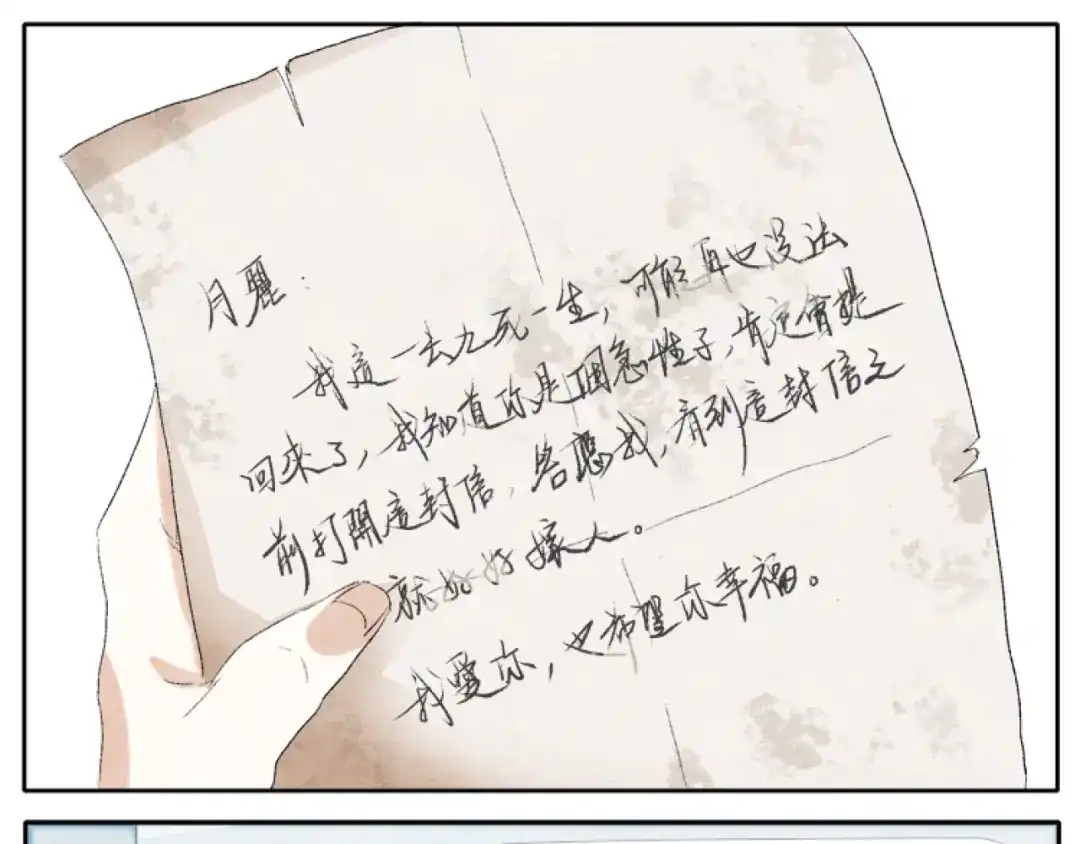 月麗：
我這一去九死一生，可能再也沒法
回來了，我知道你是個急性子，肯定會提
前打開這封信，答應我，看到這封信之
就好好嫁人。
我愛你，也希望你幸福。